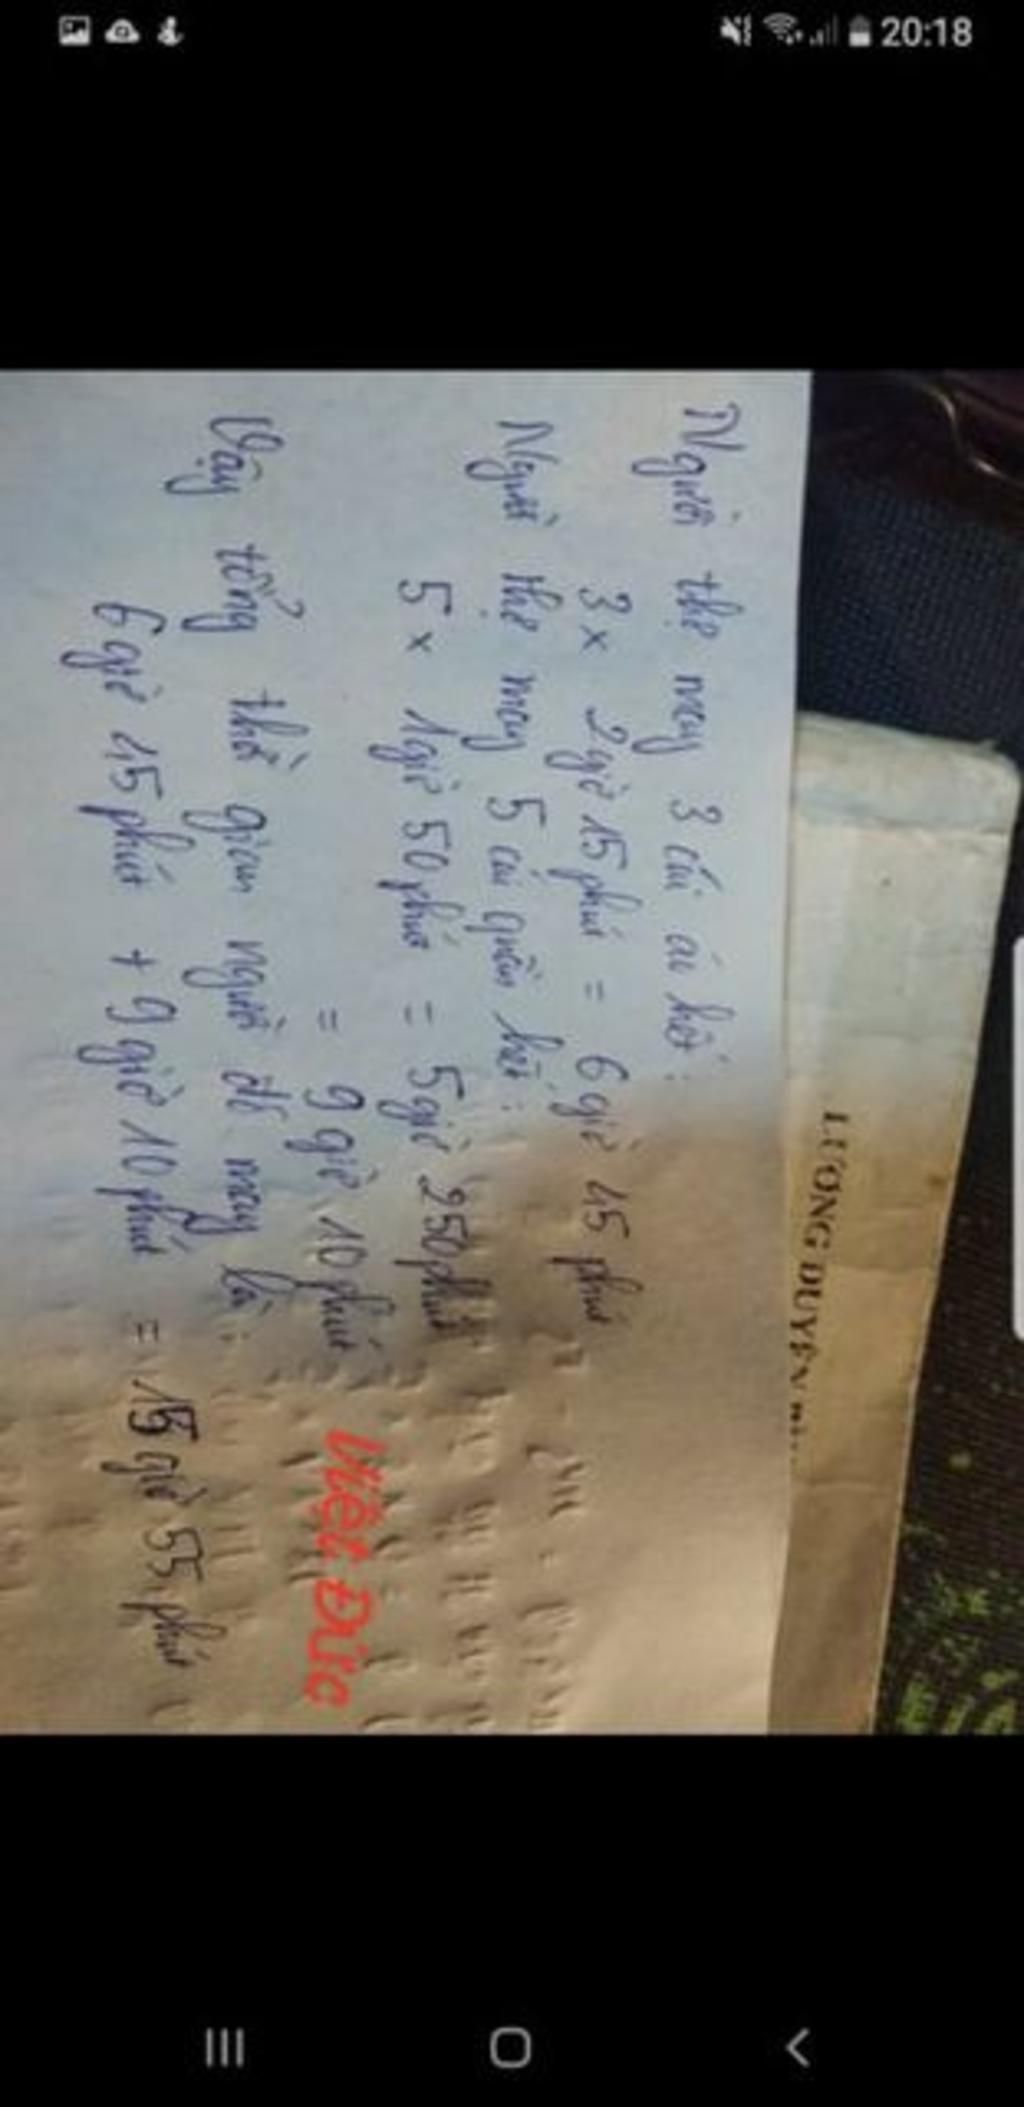 20:18
LƯƠNG DUYÊN
Người thợ may 3 cái áo hết:
3 x 2giờ 15phút = 6giờ 45 phút
Người thợ may 5 cái quần hết:
5 x 1giờ 50phút = 5giờ 250phút
= 9giờ 10phút
Vậy tổng thời gian người đó may là:
6giờ 15phút + 9giờ 10phút = 15giờ 55phút
Việt Đức